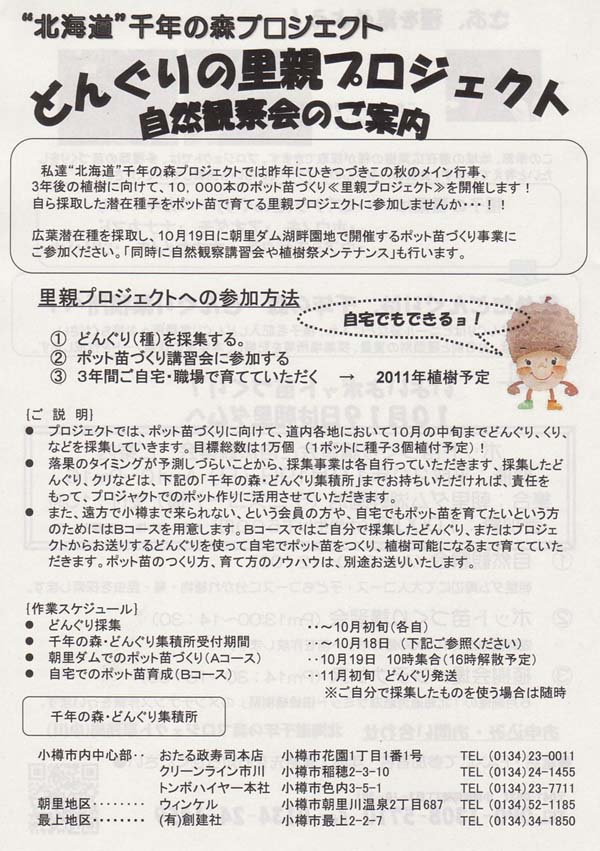 “北海道”千年の森プロジェクト
どんぐりの里親プロジェクト
自然観察会のご案内
私達“北海道”千年の森プロジェクトでは昨年にひきつづきこの秋のメイン行事、
3年後の植樹に向けて、10,000本のポット苗づくり≪里親プロジェクト≫を開催します！
自ら採取した潜在種子をポット苗で育てる里親プロジェクトに参加しませんか・・・！！
広葉潜在種を採取し、10月19日に朝里ダム湖畔園地で開催するポット苗づくり事業に
ご参加ください。「同時に自然観察講習会や植樹祭メンテナンス」も行います。
里親プロジェクトへの参加方法
自宅でもできるョ！
① どんぐり(種)を採集する。
② ポット苗づくり講習会に参加する
③ 3年間ご自宅・職場で育てていただく → 2011年植樹予定
{ご 説 明}
● プロジェクトでは、ポット苗づくりに向けて、道内各地において10月の中旬までどんぐり、くり、
などを採集していきます。目標総数は1万個 (1ポットに種子3個植付予定)！
● 落果のタイミングが予測しづらいことから、採集事業は各自行っていただきます、採集したど
んぐり、クリなどは、下記の「千年の森・どんぐり集積所」までお持ちいただければ、責任を
もって、プロジャクトでのポット作りに活用させていただきます。
● また、遠方で小樽まで来られない、という会員の方や、自宅でもポット苗を育てたいという方
のためにはBコースを用意します。Bコースではご自分で採集したどんぐり、またはプロジェ
クトからお送りするどんぐりを使って自宅でポット苗をつくり、植樹可能になるまで育てていた
だきます。ポット苗のつくり方、育て方のノウハウは、別途お送りいたします。
{作業スケジュール}
● どんぐり採集 ‥～10月初旬(各自)
● 千年の森・どんぐり集積所受付期間 ‥～10月18日 (下記ご参照ください)
● 朝里ダムでのポット苗づくり(Aコース) ‥10月19日 10時集合(16時解散予定)
● 自宅でのポット苗育成(Bコース) ‥11月初旬 どんぐり発送
※ご自分で採集したものを使う場合は随時
千年の森・どんぐり集積所
小樽市内中心部‥ おたる政寿司本店 小樽市花園1丁目1番1号 TEL (0134)23-0011
クリーンライン市川 小樽市稲穂2-3-10 TEL (0134)24-1455
トンボハイヤー本社 小樽市色内3- TEL (0134)23-7711
朝里地区‥‥‥‥ ウィンケル 小樽市朝里川温泉2丁目687 TEL (0134)52-1185
最上地区‥‥‥‥ (有)創建社 小樽市最上2-2-7 TEL (0134)34-1850